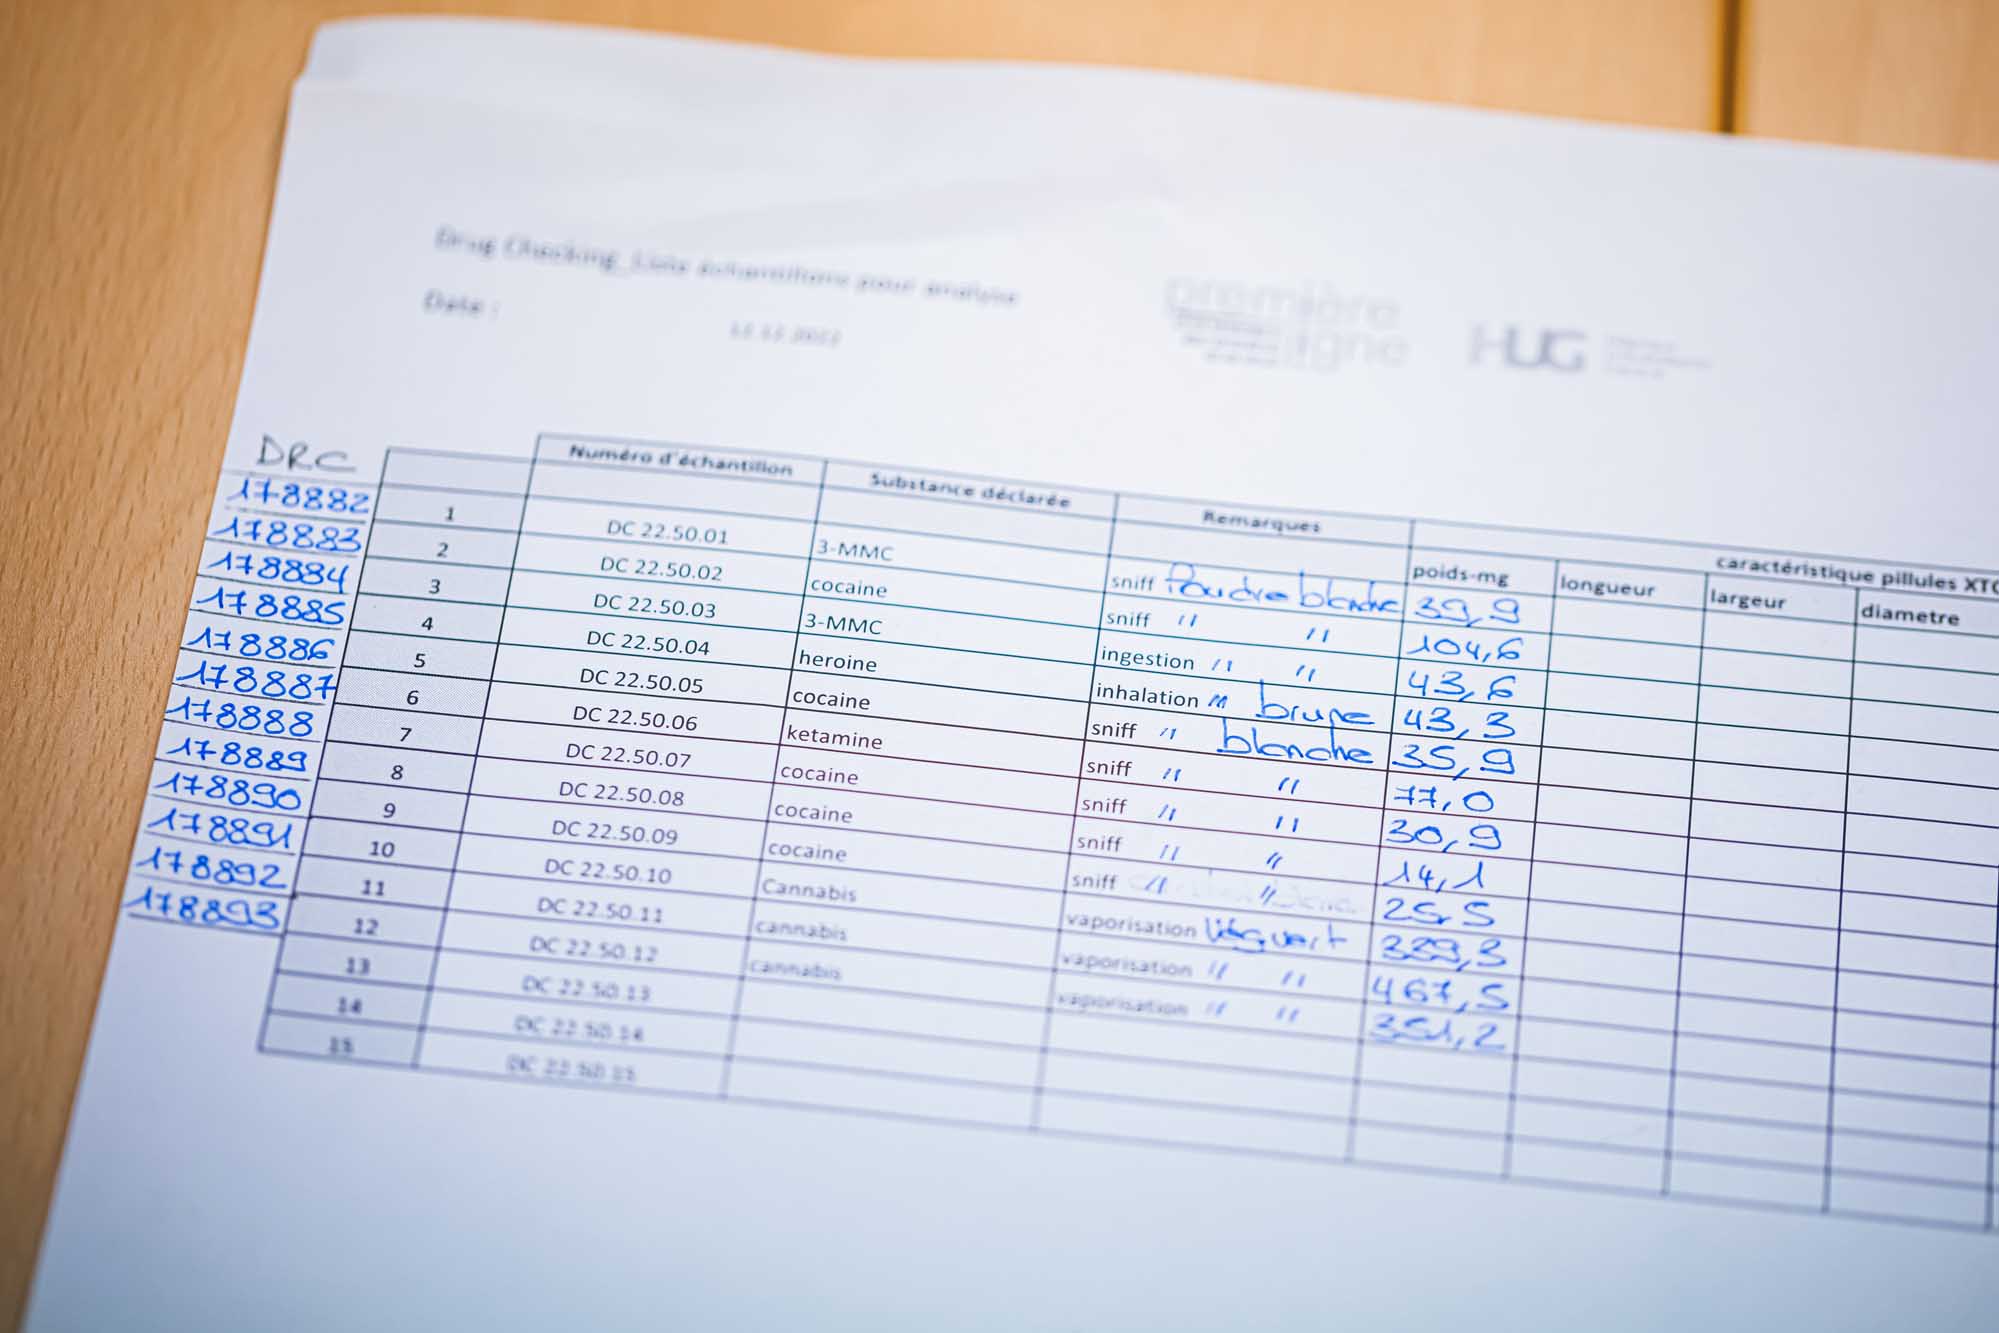 Drug Checking_Liste échantillons pour analyse
Date : 12.12.2022
première ligne
HUG
DRC
Numéro d'échantillon Substance déclarée Remarques caractéristique pillules XTC
poids-mg longueur largeur diametre
178882 1 DC 22.50.01 3-MMC sniff Poudre blanche 39,9
178883 2 DC 22.50.02 cocaine sniff " " 104,6
178884 3 DC 22.50.03 3-MMC ingestion " " 43,6
178885 4 DC 22.50.04 heroine inhalation " brune 43,3
178886 5 DC 22.50.05 cocaine sniff " blanche 35,9
178887 6 DC 22.50.06 ketamine sniff " " 77,0
178888 7 DC 22.50.07 cocaine sniff " " 30,9
178889 8 DC 22.50.08 cocaine sniff " " 14,1
178890 9 DC 22.50.09 cocaine sniff " " 25,5
178891 10 DC 22.50.10 Cannabis vaporisation vert
178892 11 DC 22.50.11 cannabis vaporisation " " 467,5
178893 12 DC 22.50.12 cannabis vaporisation " " 351,2
13 DC 22.50.13
14 DC 22.50.14
15 DC 22.50.15